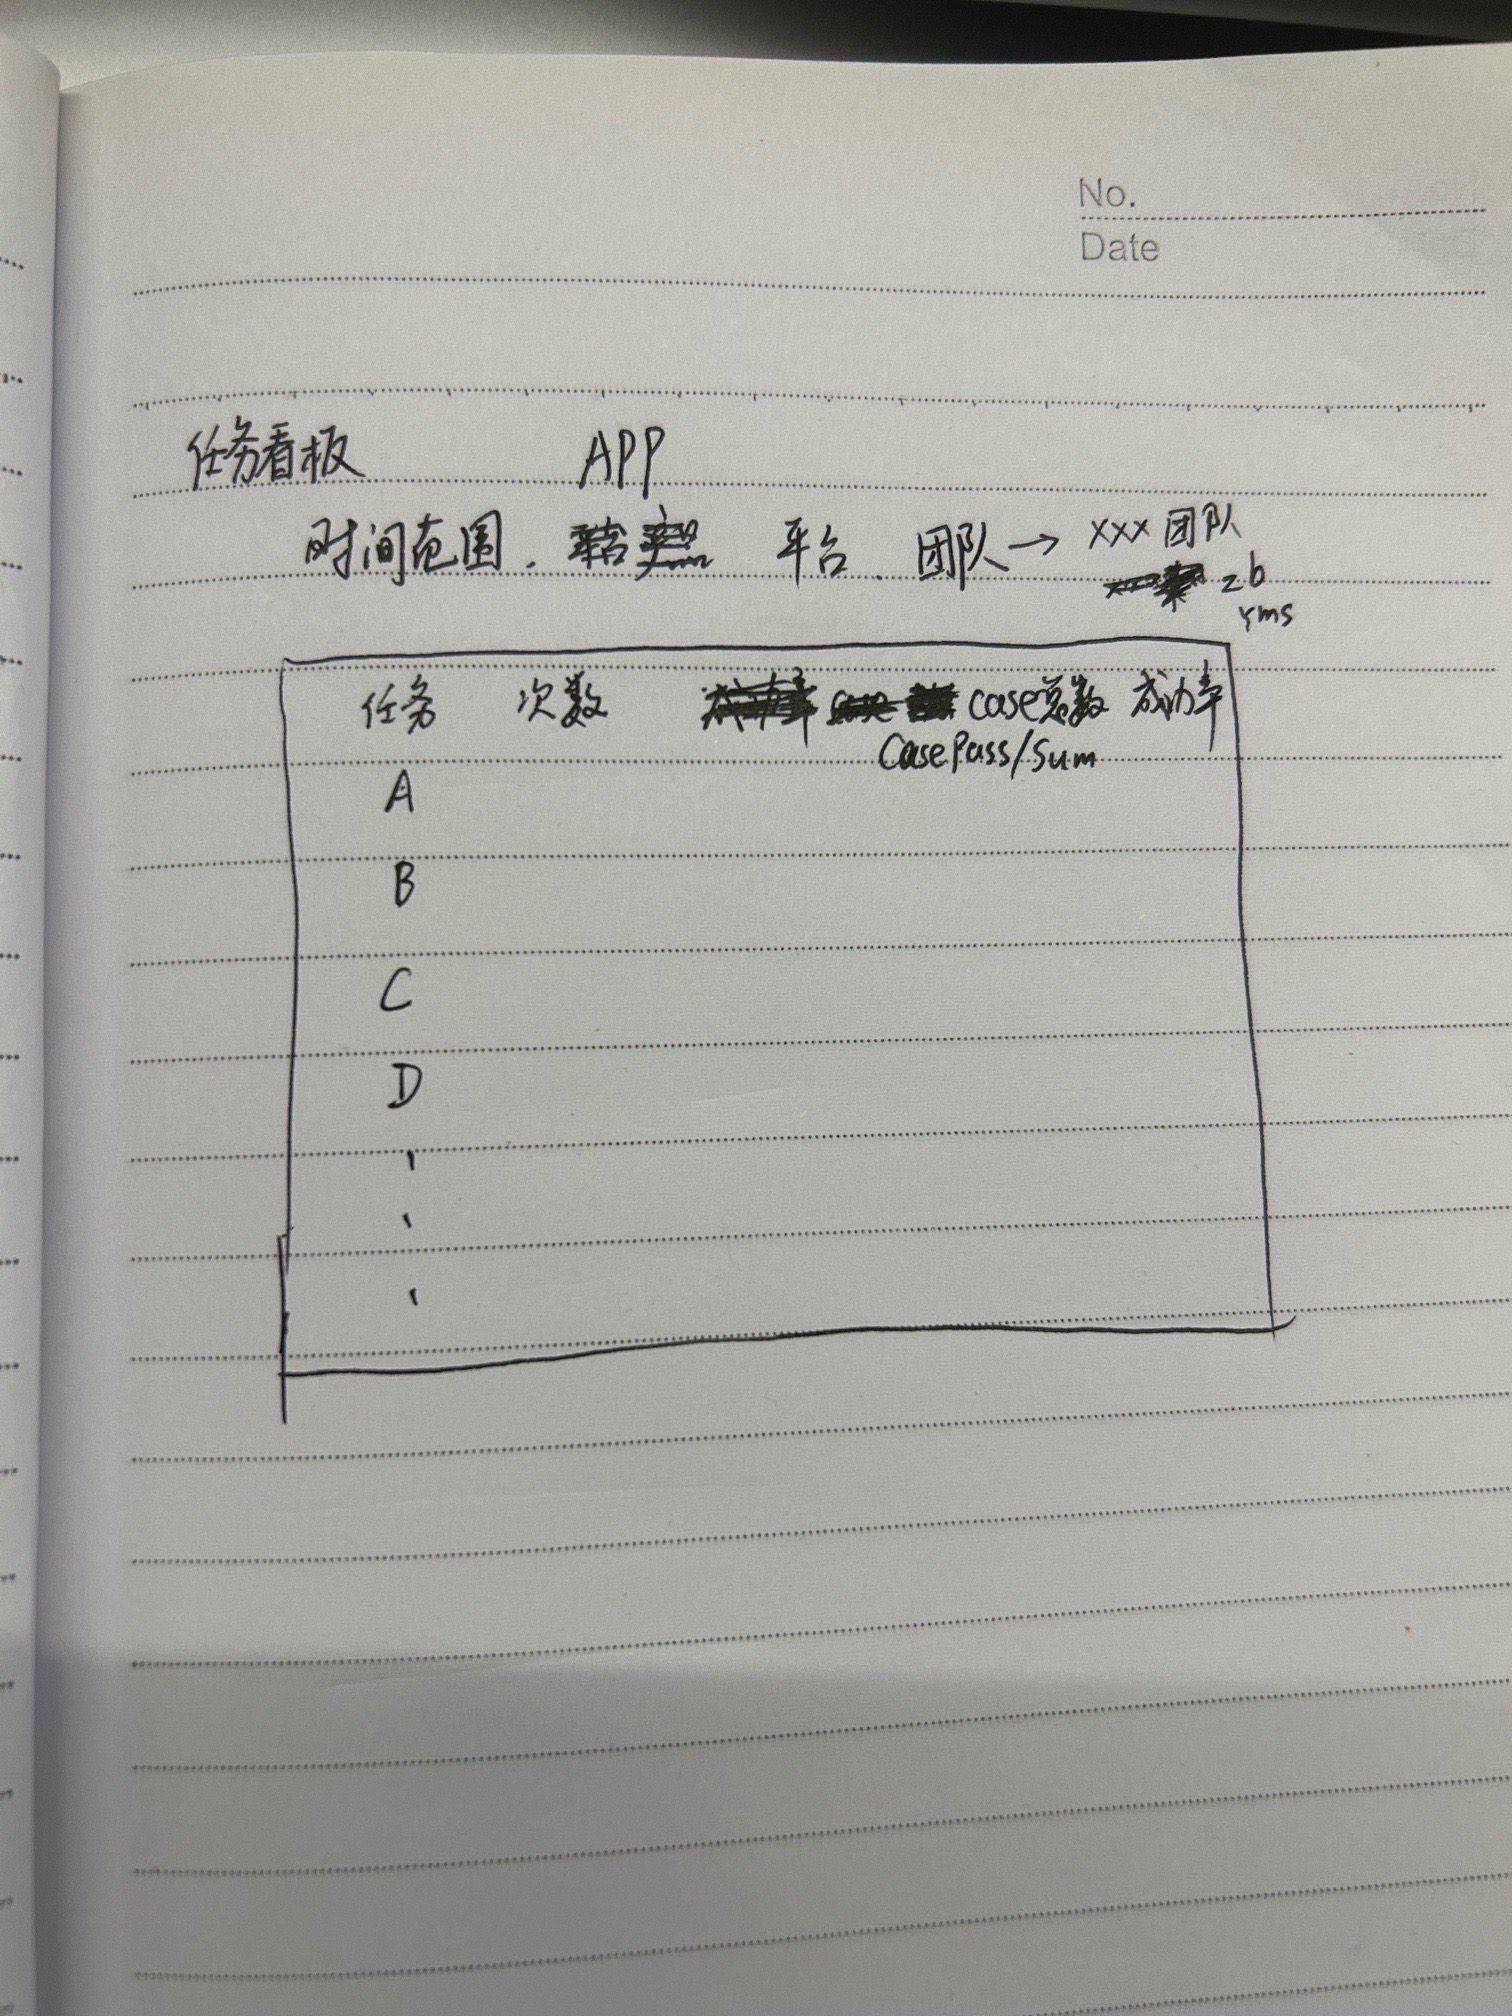 No.
Date
任务看板 APP
时间范围. 平台. 团队→ xxx团队
zb
yms
任务 次数 case总数 成功率
CasePass/Sum
A
B
C
D